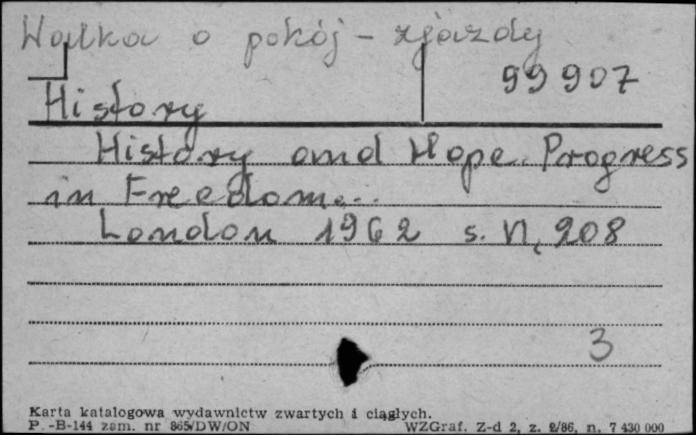 Walka o pokój - zjazdy
99907
History
History and Hope. Progress
in Freedom...
London 1962 s. VI, 208
3
Karta katalogowa wydawnictw zwartych i ciągłych.
P.-B-144 zam. nr 865/DW/ON WZGraf. Z-d 2, z. 2/86, n. 7 430 000